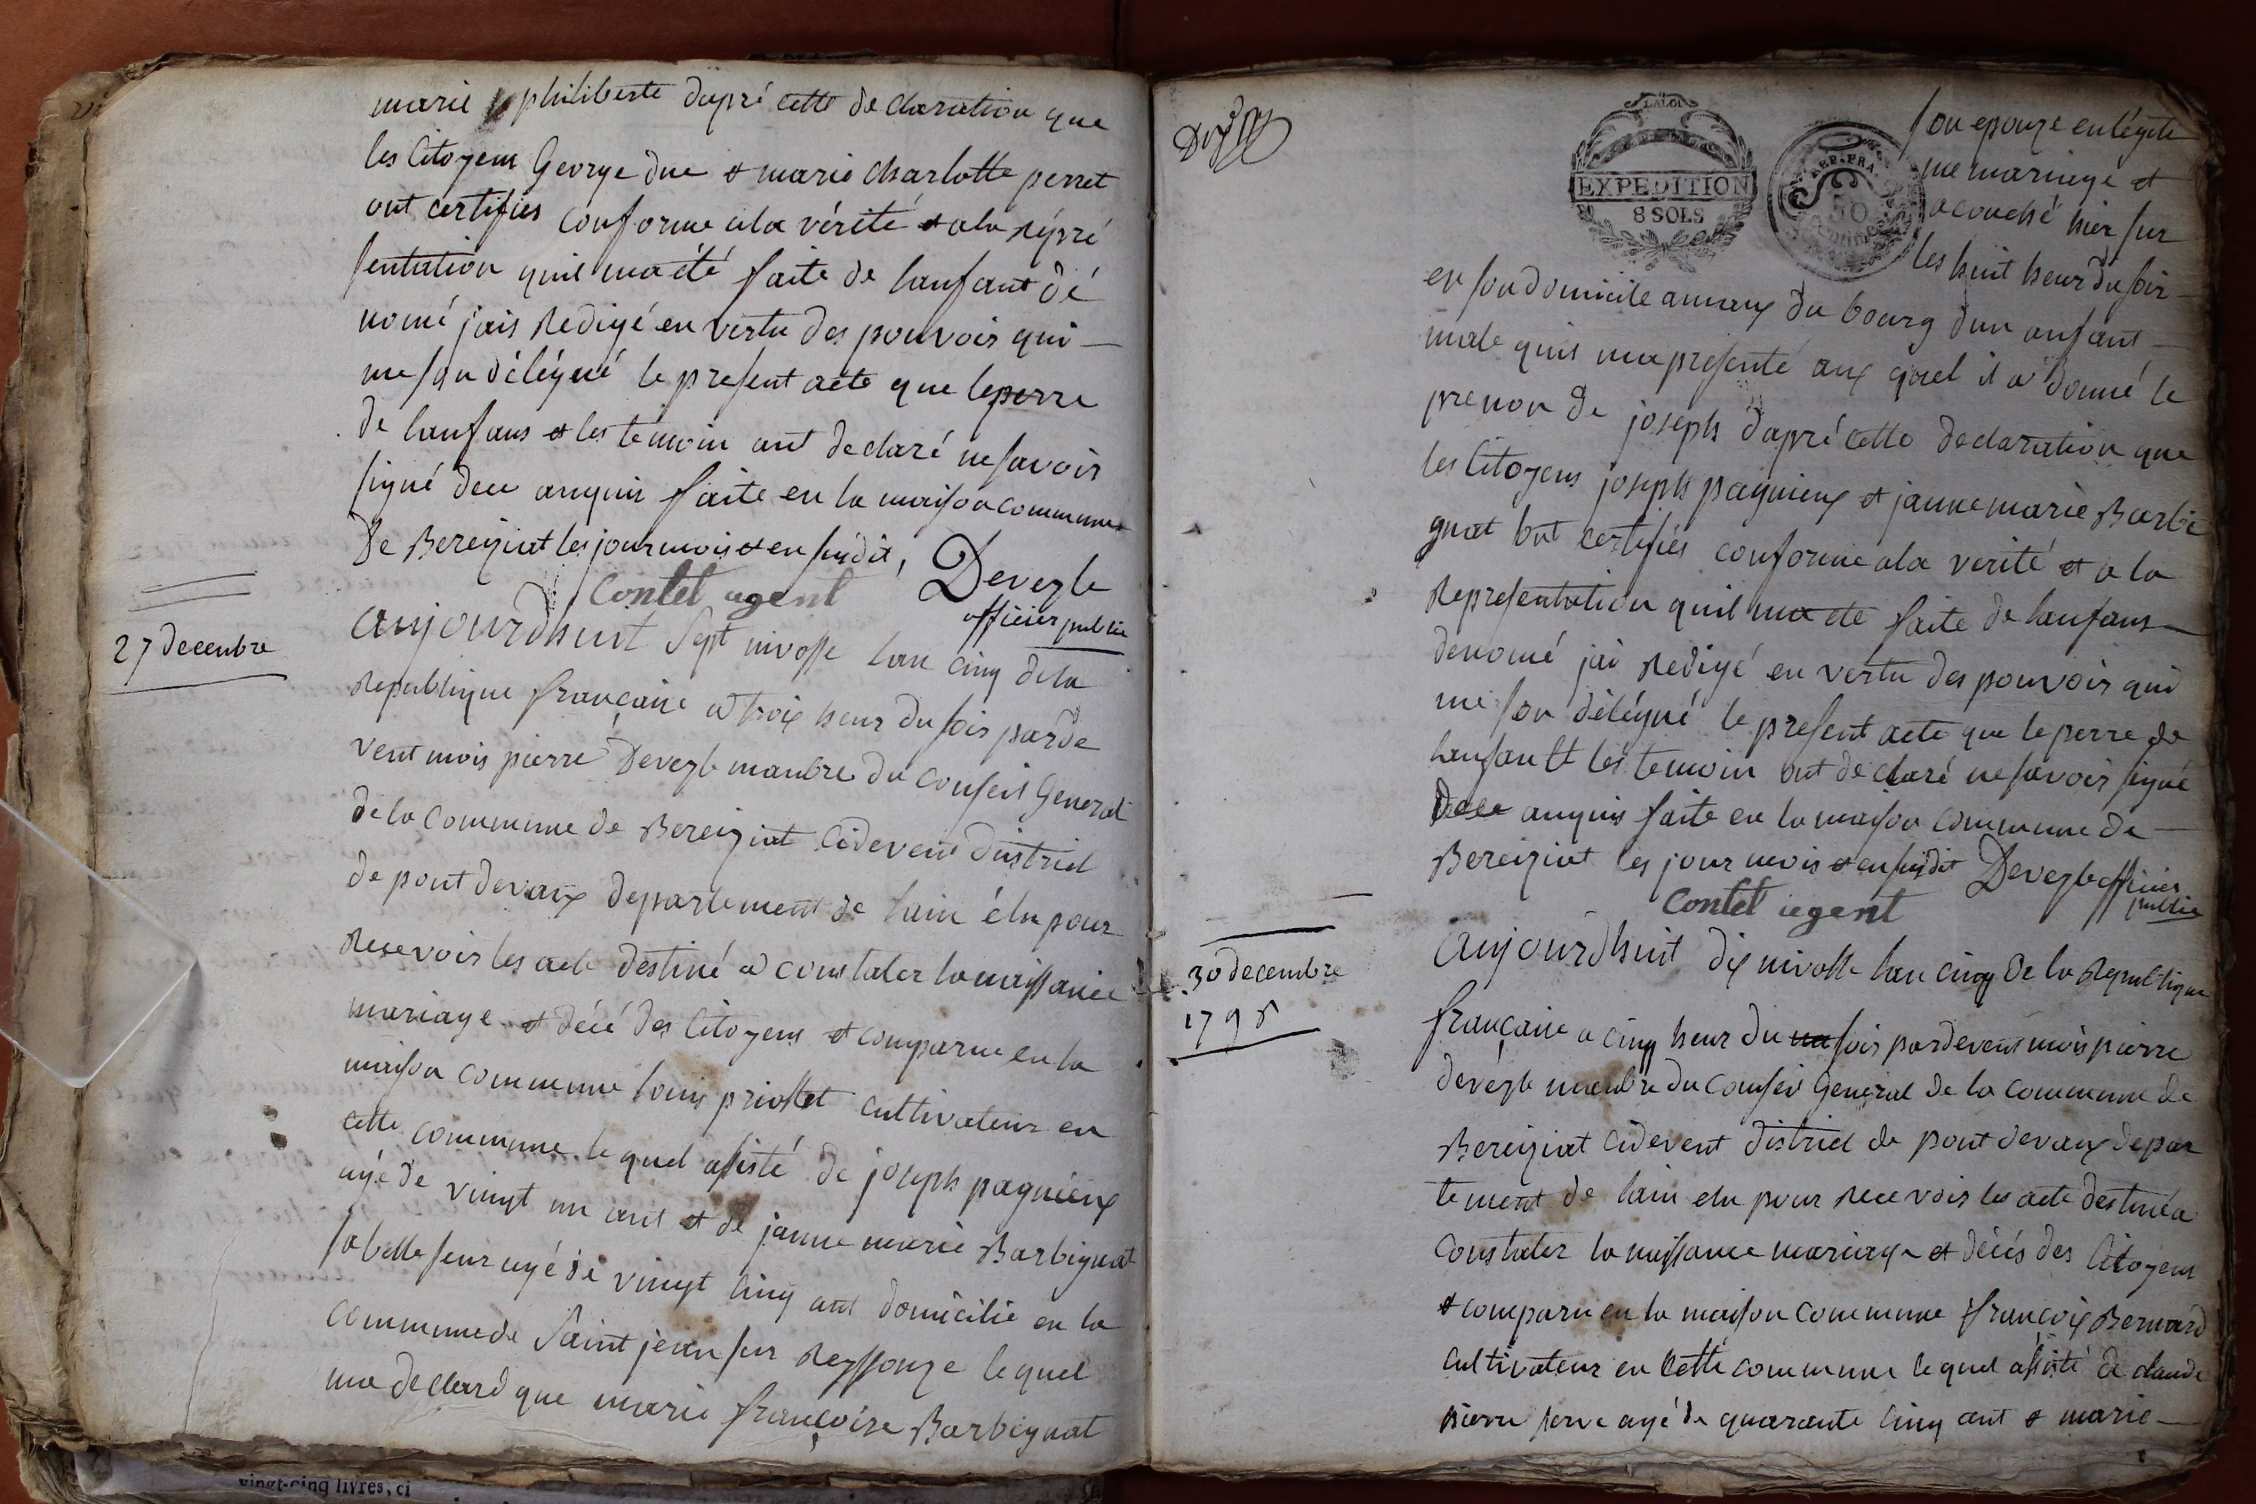 marie philiberte dapré cette declaration que
les Citoyens George due et marie charlotte perret
ont certifiés conforme ala vérité et ala répré
sentation quil ma été faite de lanfant dé
nomé jais Redigé en vertu des pouvoir qui
me son délégué le present acte que le perre
de lanfans et les temoin ont declaré ne savoir
signé faite en la maison commune
De Bereiziat les jour mois et en susdit, Devezle
officier public
Contet agent
27 decenbre
aujourdhuit Sept nivosse lan cinq dela
Republique francaise a troix heur du soir parde
vent mois pierre Devezle manbre du conseis General
de la Commune de Bereiziat cidevent district
de pont devaux departement de lain élu pour
Resevoir les acte destiné a constater la naissance
mariage et décé des Citoyens et comparue en la
maison commune louis priollet cultivateur en
cette commune le quel asisté de joseph pagnieux
ajé de vingt un ant et de janne marie Barbignat
sa belle seur ajé de vingt cinq ant domicilié en la
commune de Saint jean sur Reyssouze le quel
ma declaré que marie francoise Barbignat
son epouze en légiti
me mariage et
acouché hier sur
les huit heur du soir
LA LOI
EXPEDITION
8 SOLS
REP. FRA.
50
en son domicile du bourg dun anfant
male quis ma presenté aux quel il a donné le
prenon de joseph dapré cette declaration que
les Citoyens joseph pagnieux et janne marie Barbi
gnat ont certifiés conforme ala verité et a la
Representation quil ma eté faite de lanfans
denomé jai Redigé en vertu des pouvoir qui
me son délégué le present acte que le perre de
lanfant et les temoin ont declaré ne savoir signé
faite en la maison commune de
Bereiziat les jour mois et en susdit Devezle officier
public
Contet agent
30 decembre
179
aujourdhuit dix nivosse lan cinq de la Republique
francaise a cinq heur du soir pardevent mois pierre
devezle manbre du conseis General de la commune de
Bereiziat cidevent district de pont devaux depar
tement de lain elu pour Recevoir les acte destiné a
constater la naissance mariage et décés des Citoyens
et comparu en la maison commune francoix Bernard
cultivateur en cette commune le quel asisté de claude
pierre ajé de quarante cinq ant et marie
vingt-cinq livres, ci